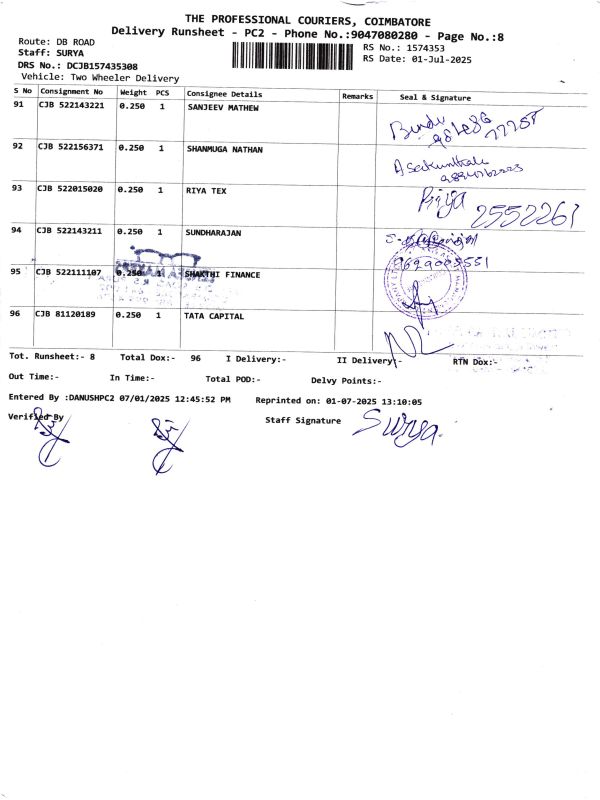 THE PROFESSIONAL COURIERS, COIMBATORE
Delivery Runsheet - PC2 - Phone No.:9047080280 - Page No.:8
Route: DB ROAD
Staff: SURYA
DRS No.: DCJB157435308
Vehicle: Two Wheeler Delivery
RS No.: 1574353
RS Date: 01-Jul-2025
S No Consignment No Weight PCS Consignee Details Remarks Seal & Signature
91 CJB 522143221 0.250 1 SANJEEV MATHEW
92 CJB 522156371 0.250 1 SHANMUGA NATHAN
93 CJB 522015020 0.250 1 RIYA TEX Priya 2552261
94 CJB 522143211 0.250 1 SUNDHARAJAN
95 CJB 522111107 0.250 1 SHAKTHI FINANCE
96 CJB 81120189 0.250 1 TATA CAPITAL
Tot. Runsheet:- 8 Total Dox:- 96 I Delivery:- II Delivery:- RTN Dox:-
Out Time:- In Time:- Total POD:- Delvy Points:-
Entered By :DANUSHPC2 07/01/2025 12:45:52 PM Reprinted on: 01-07-2025 13:10:05
Verified By Staff Signature Surya.